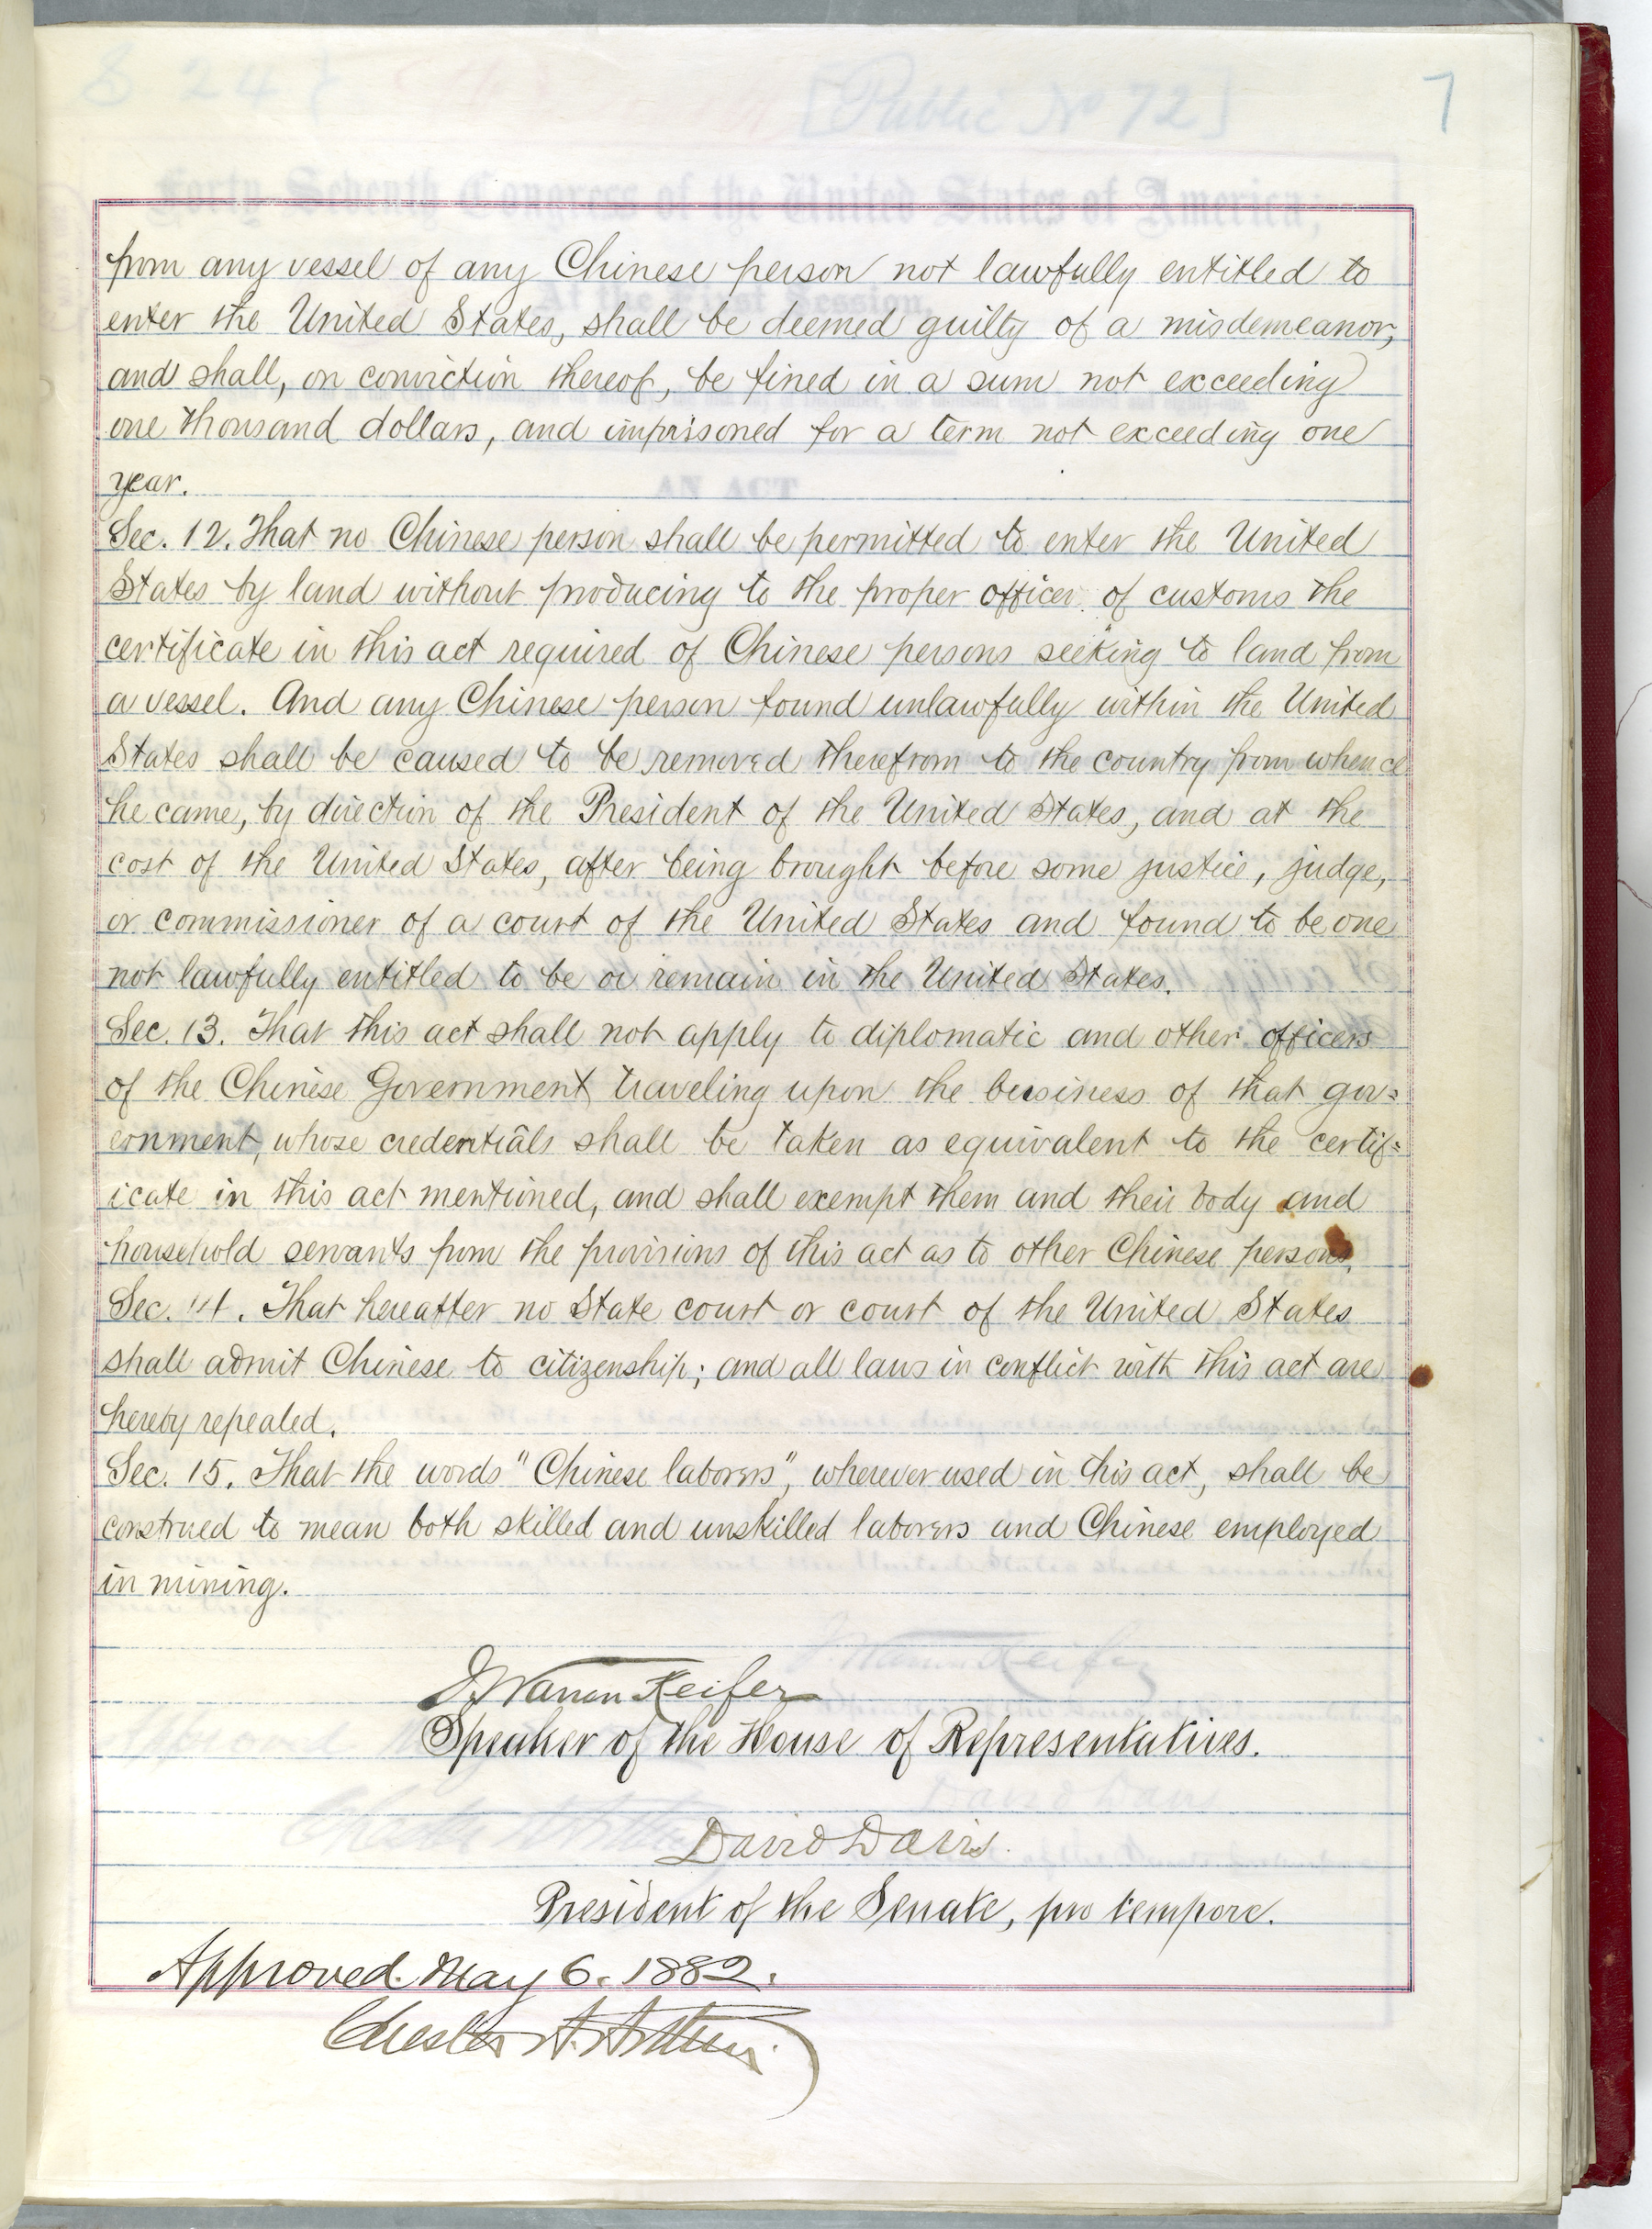 7
[Public No 72]
Forty Seventh Congress of the United States of America;
At the First Session,
from any vessel of any Chinese person not lawfully entitled to
enter the United States, shall be deemed guilty of a misdemeanor,
and shall, on conviction thereof, be fined in a sum not exceeding
one thousand dollars, and imprisoned for a term not exceeding one
year.
AN ACT
Sec. 12. That no Chinese person shall be permitted to enter the United
States by land without producing to the proper officer of customs the
certificate in this act required of Chinese persons seeking to land from
a vessel. And any Chinese person found unlawfully within the United
States shall be caused to be removed therefrom to the country from whence
he came, by direction of the President of the United States, and at the
cost of the United States, after being brought before some justice, judge,
or commissioner of a court of the United States and found to be one
not lawfully entitled to be or remain in the United States.
Sec. 13. That this act shall not apply to diplomatic and other officers
of the Chinese Government traveling upon the business of that gov=
ernment, whose credentials shall be taken as equivalent to the certif=
icate in this act mentioned, and shall exempt them and their body and
household servants from the provisions of this act as to other Chinese persons.
Sec. 14. That hereafter no State court or court of the United States
shall admit Chinese to citizenship; and all laws in conflict with this act are
hereby repealed.
Sec. 15. That the words "Chinese laborers", wherever used in this act, shall be
construed to mean both skilled and unskilled laborers and Chinese employed
in mining.
J. Warren Keifer
Speaker of the House of Representatives.
David Davis.
President of the Senate, pro tempore.
Approved May 6. 1882.
Chester A. Arthur.